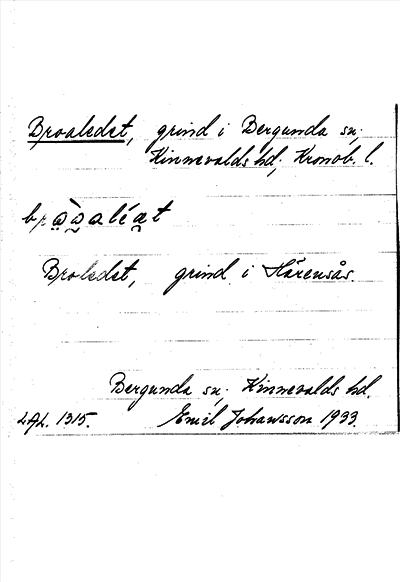 Broaledet, grind i Bergunda sn;
Kinnevalds hd; Kronob. l.
Broledet, grind i Härensås.
Bergunda sn; Kinnevalds hd.
LAL. 1315. Emil Johansson 1933.